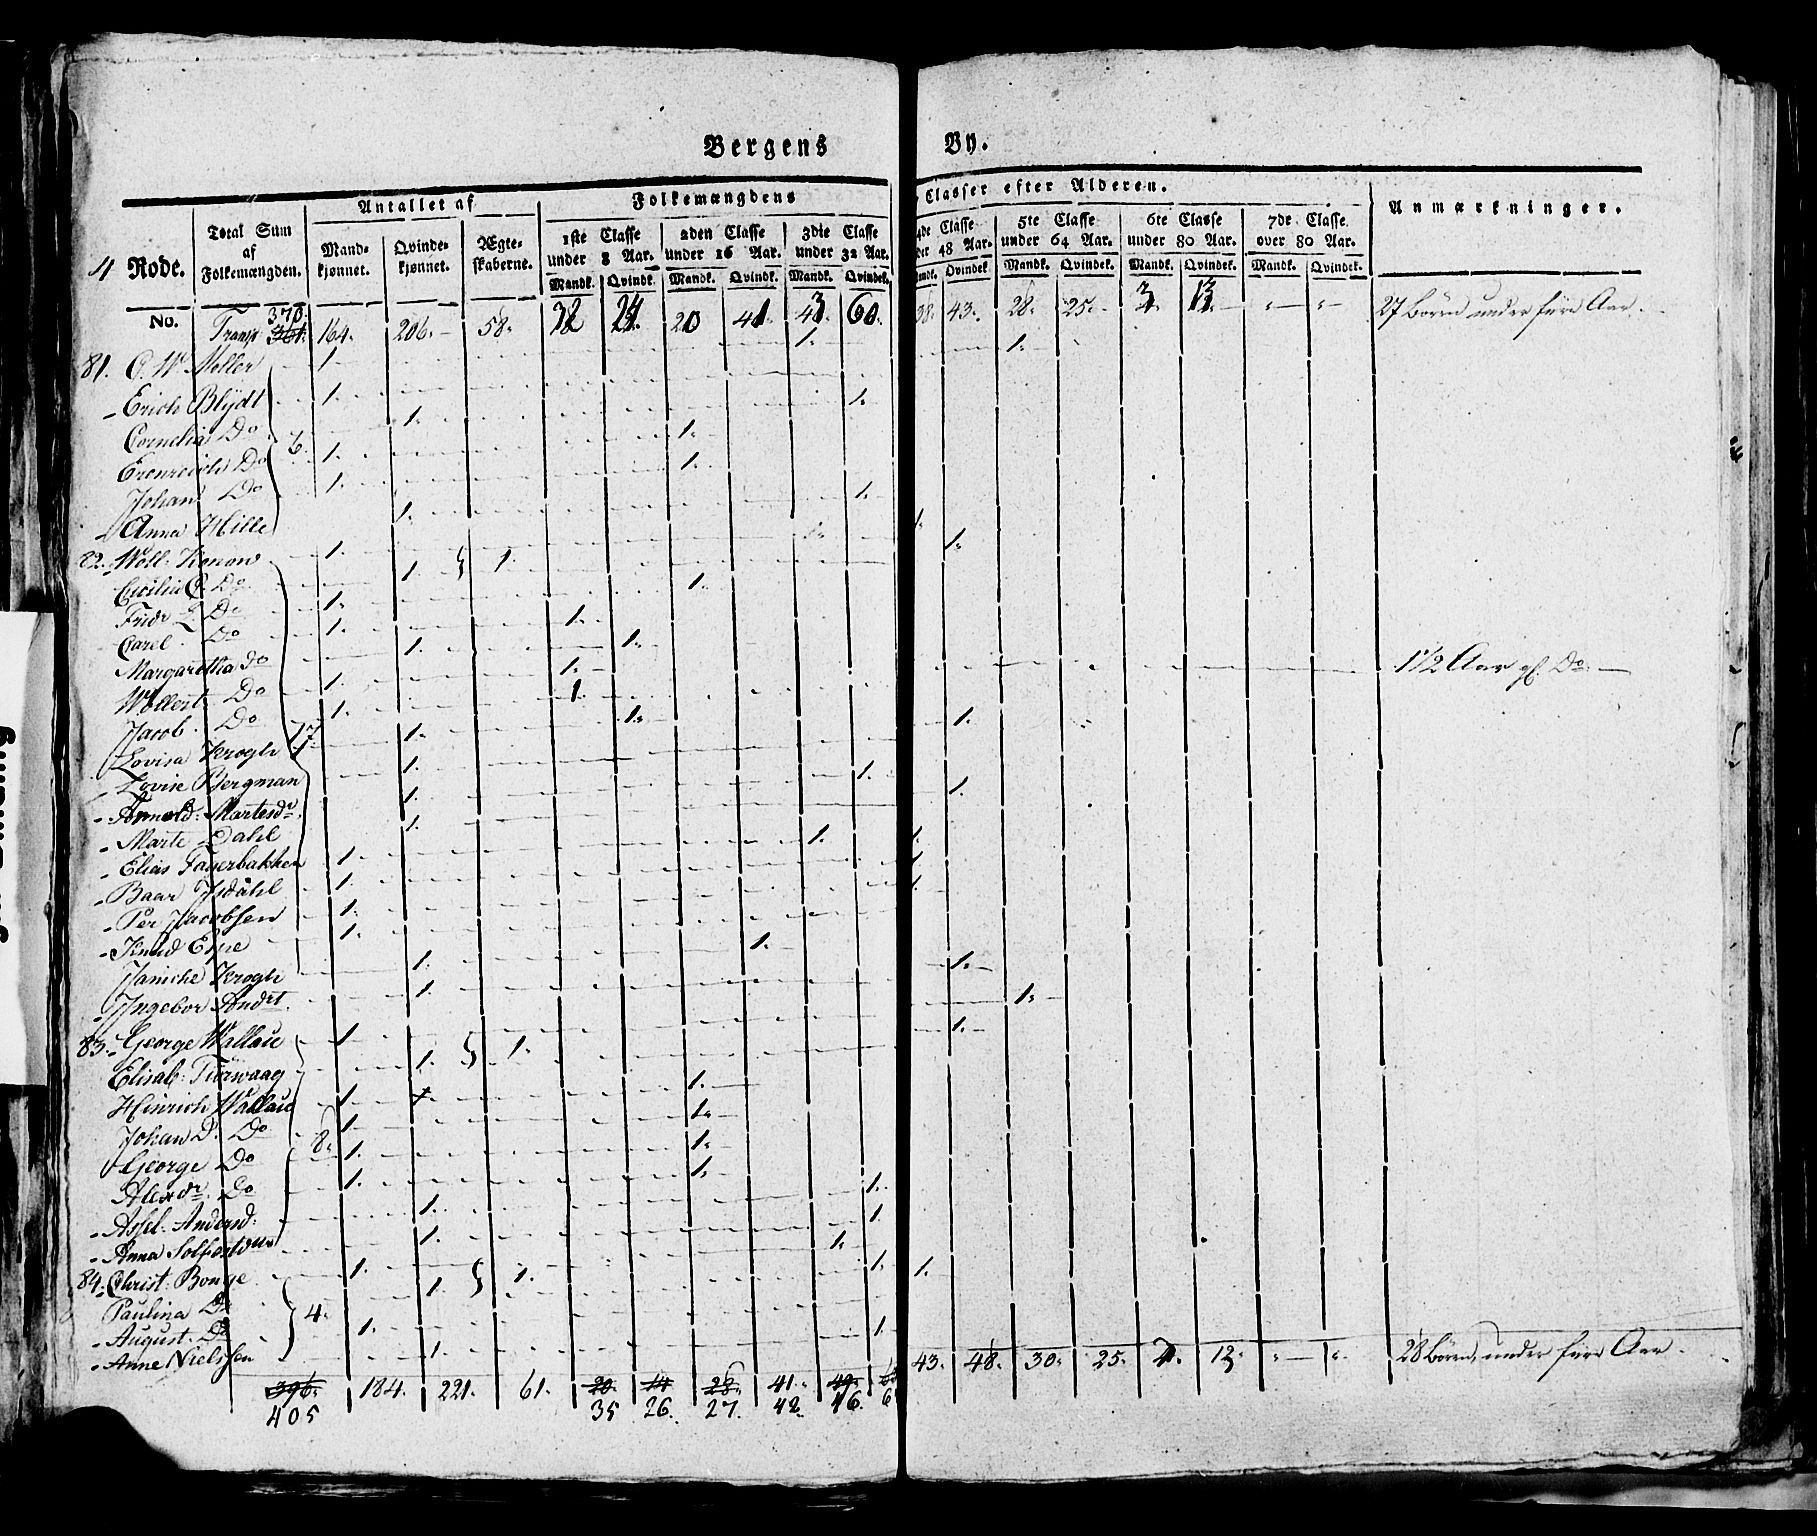 Bergens By.
4 Rode.
Total Sum af Folkemængden.
Antallet af
Mandkjønnet. Qvindekjønnet. Ægteskaberne.
Folkemængdens Classer efter Alderen.
1ste Classe under 8 Aar. 2den Classe under 16 Aar. 3die Classe under 32 Aar. 4de Classe 48 Aar. 5te Classe under 64 Aar. 6te Classe under 80 Aar. 7de Classe over 80 Aar.
Mandk. Qvindk. Mandk. Qvindk. Mandk. Qvindek. Qvindek. Mandk. Qvindek. Mandk. Qvindek. Mandk. Qvindek.
Anmærkninger.
No. Transp 370. 361. 164. 206. 58. 32 24 20 41 43 60. 38. 43. 28. 25. 13 27 Börn under füre Aar.
81. C. W Moller 1. 1.
Erich Blydt 1. 1.
Cornelia Do 1. 1.
6.
Erenreich Do 1. 1.
Johan Do 1. 1.
Anna Hille 1. 1.
82. Woll. Konow 1. 1. 1.
Cecilia C. Do 1. 1.
Fridr L Do 1. 1.
Carel Do 1. 1.
Margaretha Do 1. 1.
Wollert Do 1. 1. 1 1/2 Aar gl. Do.
Jacob. Do 1. 1.
17.
Lovisa Krogh 1. 1.
Lovise Bergman 1. 1.
Arnold: Martesdr. 1. 1.
Marte Dahl 1. 1.
Elias Fagerbakken 1. 1.
Baar Isdahl 1. 1.
Per Jacobsen 1. 1.
Knud Espe 1. 1.
Janiche Krogh 1. 1.
Ingebor Andrt. 1. 1.
83. George Wallace 1. 1. 1.
Elisab: Fürwaag 1. 1.
Hinrich Wallace 1. 1.
Johan D. Do 1. 1.
8.
George Do 1. 1.
Alexdr. Do 1. 1.
Assel. Andersd: 1. 1.
Anna Solfestdtr 1. 1.
84. Christ: Bonge 1. 1. 1.
Paulina Do 1. 1.
4.
August. Do 1. 1.
Anne Nielssen 1. 1.
396. 184. 221. 61. 20. 14 28. 41. 49. 43. 48. 30. 25. 12. 28 Börn, under füre Aar.
405 35 26. 27. 42. 46. 6